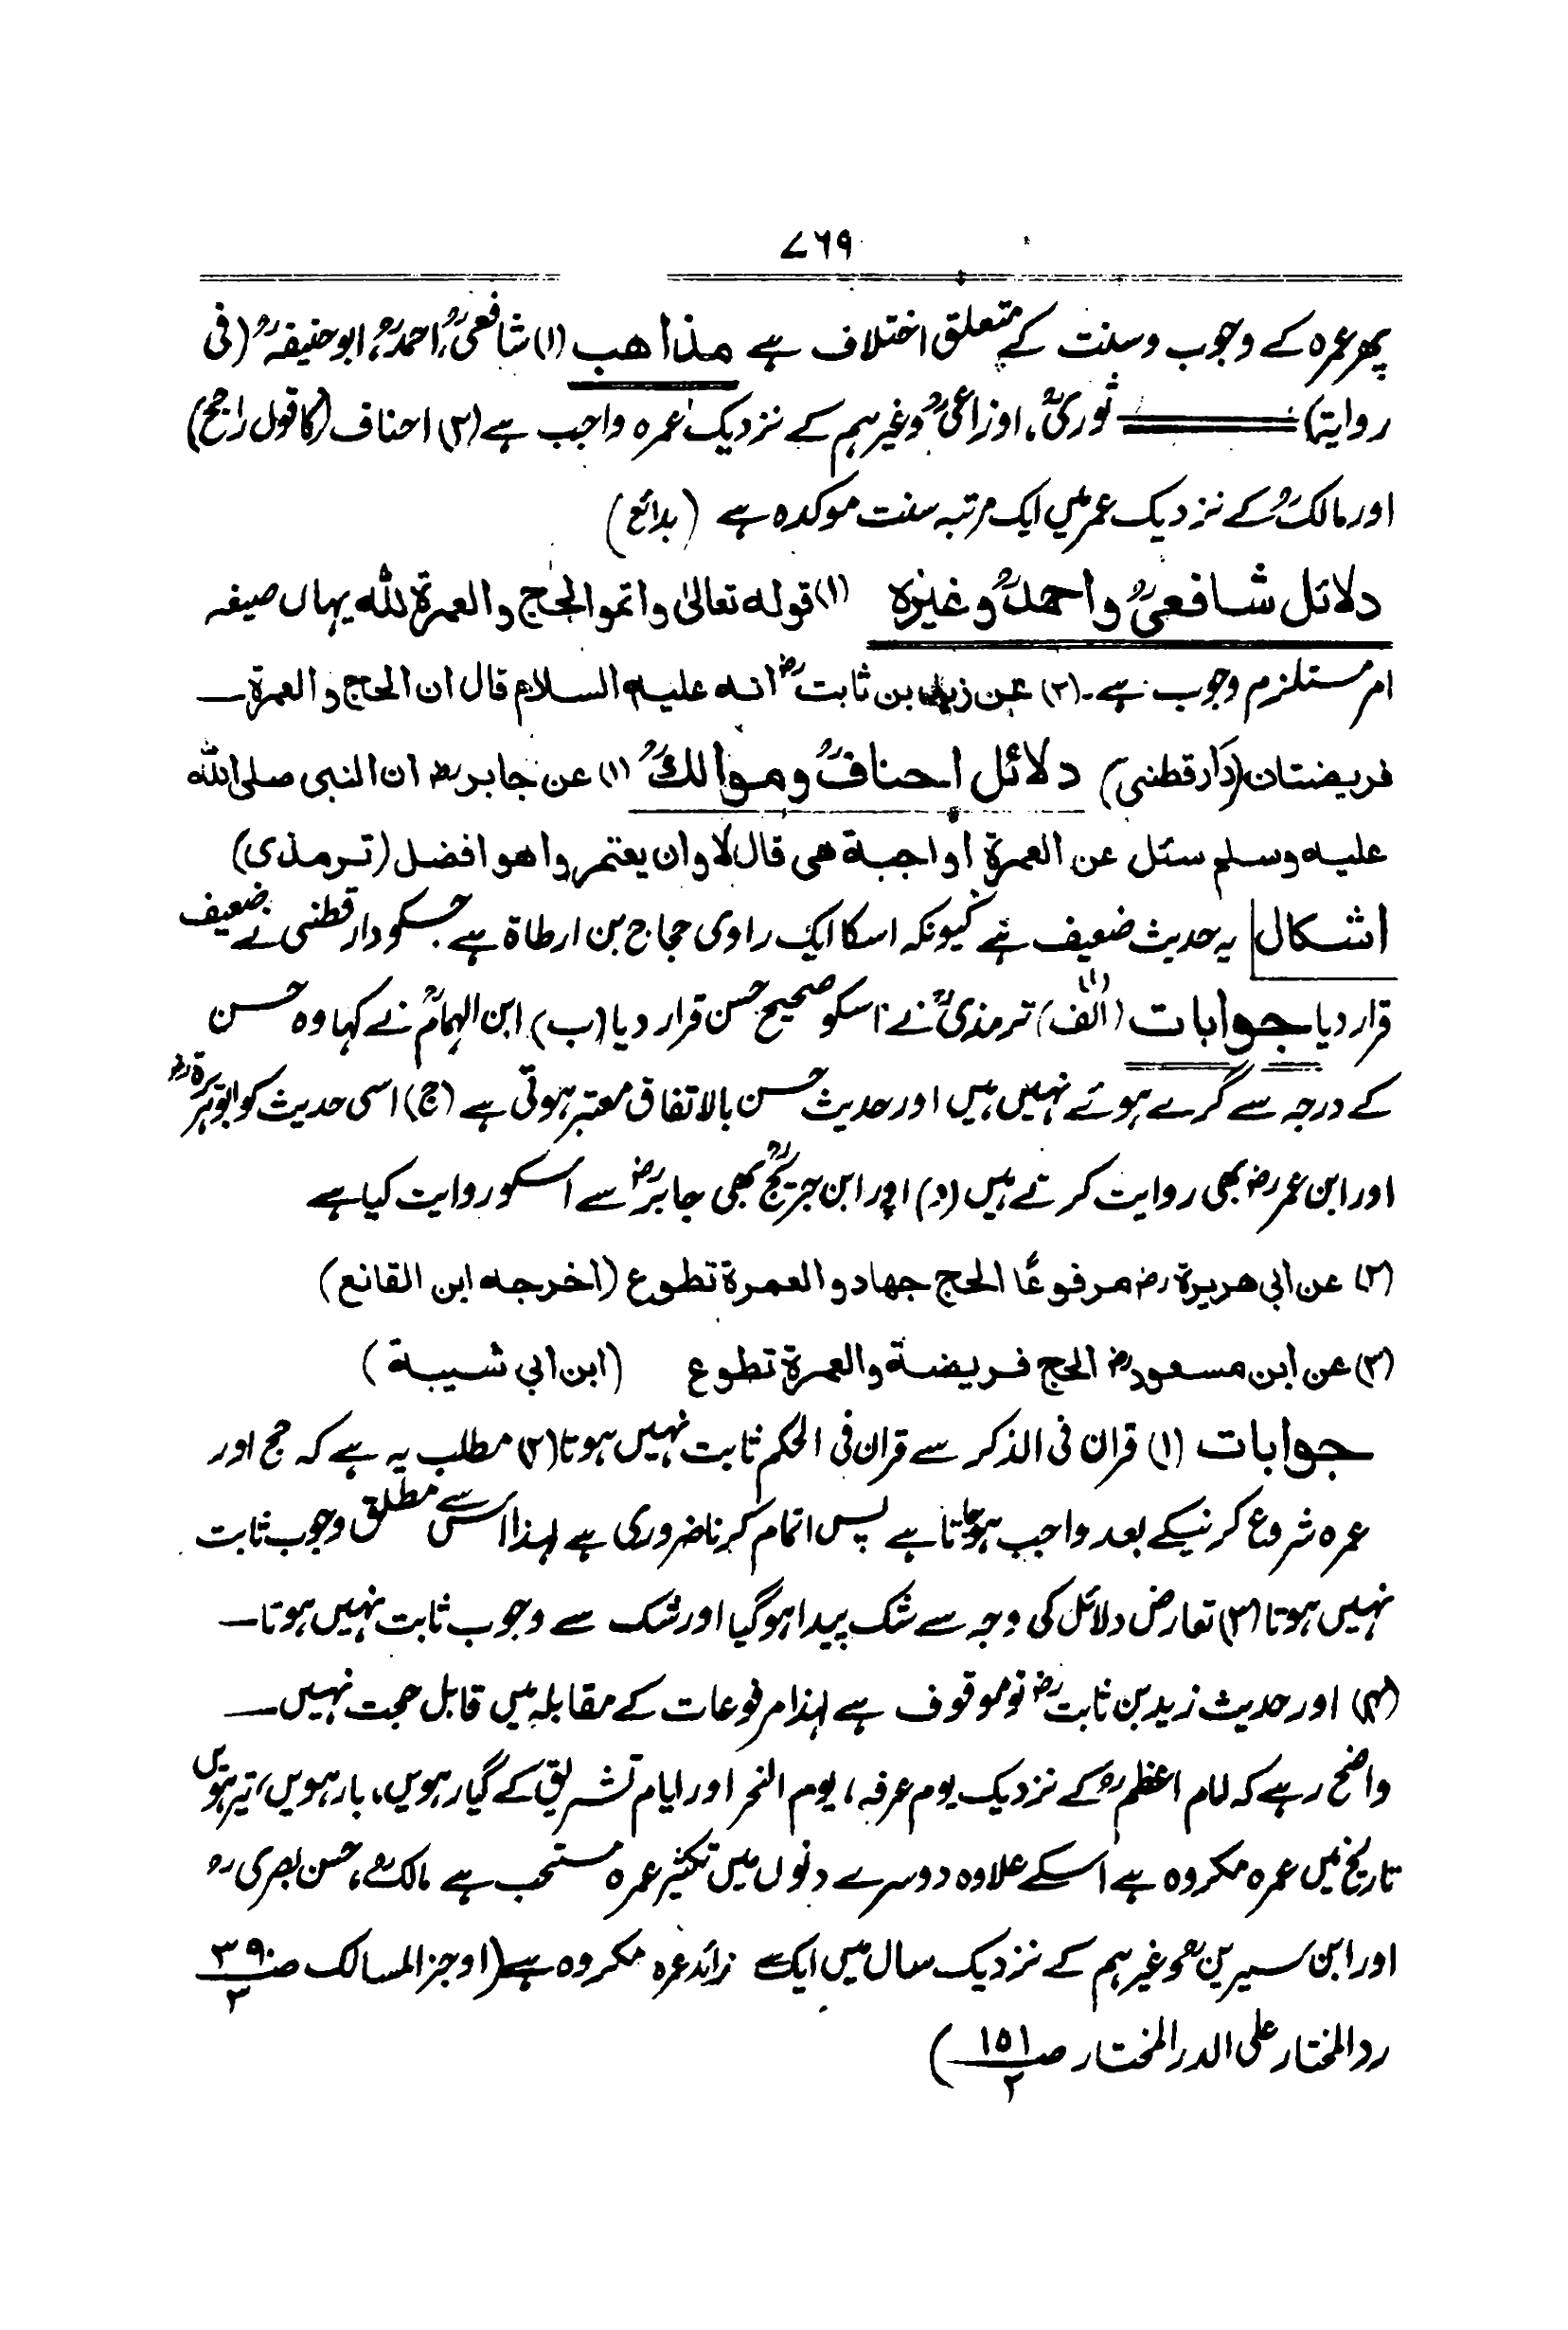 ۷۶۹
پھر عمرہ کے وجوب و سنت کے متعلق اختلاف ہے مذاهب (۱) شافعیؒ، احمدؒ، ابو حنیفہؒ (فی
روایۃ) ثوریؒ، اوزاعیؒ وغیرہم کے نزدیک عمرہ واجب ہے (۲) احناف (کا قول راجح)
اور مالکؒ کے نزدیک عمر میں ایک مرتبہ سنت موکدہ ہے (بدائع)
دلائل شافعیؒ واحمدؒ وغیرہ (۱) قوله تعالیٰ واتموا الحج والعمرۃ للہ یہاں صیغہ
امر مستلزم وجوب ہے۔ (۲) عن زید بن ثابتؓ انه علیه السلام قال ان الحج والعمرۃ ــ
فریضتان (دارقطنی) دلائل احنافؒ وموالکؒ (۱) عن جابرؓ ان النبی صلی اللہ
علیه وسلم سئل عن العمرۃ اواجبة هی قال لا وان یعتمروا هو افضل (ترمذی)
اشکال یہ حدیث ضعیف ہے کیونکہ اسکا ایک راوی حجاج بن ارطاۃ ہے جسکو دارقطنی نے ضعیف
قرار دیا جوابات (۱) (الف) ترمذیؒ نے اسکو صحیح حسن قرار دیا (ب) ابن الہمامؒ نے کہا وہ حسن
کے درجہ سے گرے ہوئے نہیں ہیں اور حدیث حسن بالاتفاق معتبر ہوتی ہے (ج) اسی حدیث کو ابوہریرۃؓ
اور ابن عمرؓ بھی روایت کرتے ہیں (د) اور ابن جریجؒ بھی جابرؓ سے اسکو روایت کیا ہے
(۲) عن ابی هریرة رض مرفوعًا الحج جهاد والعمرة تطوع (اخرجه ابن القانع)
(۳) عن ابن مسعودؓ الحج فریضة والعمرة تطوع (ابن ابی شیبة)
جوابات (۱) قران فی الذکر سے قران فی الحکم ثابت نہیں ہوتا (۲) مطلب یہ ہے کہ حج اور
عمرہ شروع کرنیکے بعد واجب ہوجاتا ہے پس اتمام کرنا ضروری ہے لہذا اس سے مطلق وجوب ثابت
نہیں ہوتا (۳) تعارض دلائل کی وجہ سے شک پیدا ہوگیا اور شک سے وجوب ثابت نہیں ہوتا ــ
(۴) اور حدیث زید بن ثابتؓ تو موقوف ہے لہذا مرفوعات کے مقابلہ میں قابل حجت نہیں ــ
واضح رہے کہ امام اعظمؒ کے نزدیک یوم عرفہ، یوم النحر اور ایام تشریق کے گیارہویں، بارہویں، تیرہویں
تاریخ میں عمرہ مکروہ ہے اسکے علاوہ دوسرے دنوں میں تکثیر عمرہ مستحب ہے مالکؒ، حسن بصریؒ
اور ابن سیرینؒ وغیرہم کے نزدیک سال میں ایک سے زائد عمرہ مکروہ ہے (اوجز المسالک ص۳۹۰/۳
ردالمختار علی الدر المختار ص۱۵۱/۲)